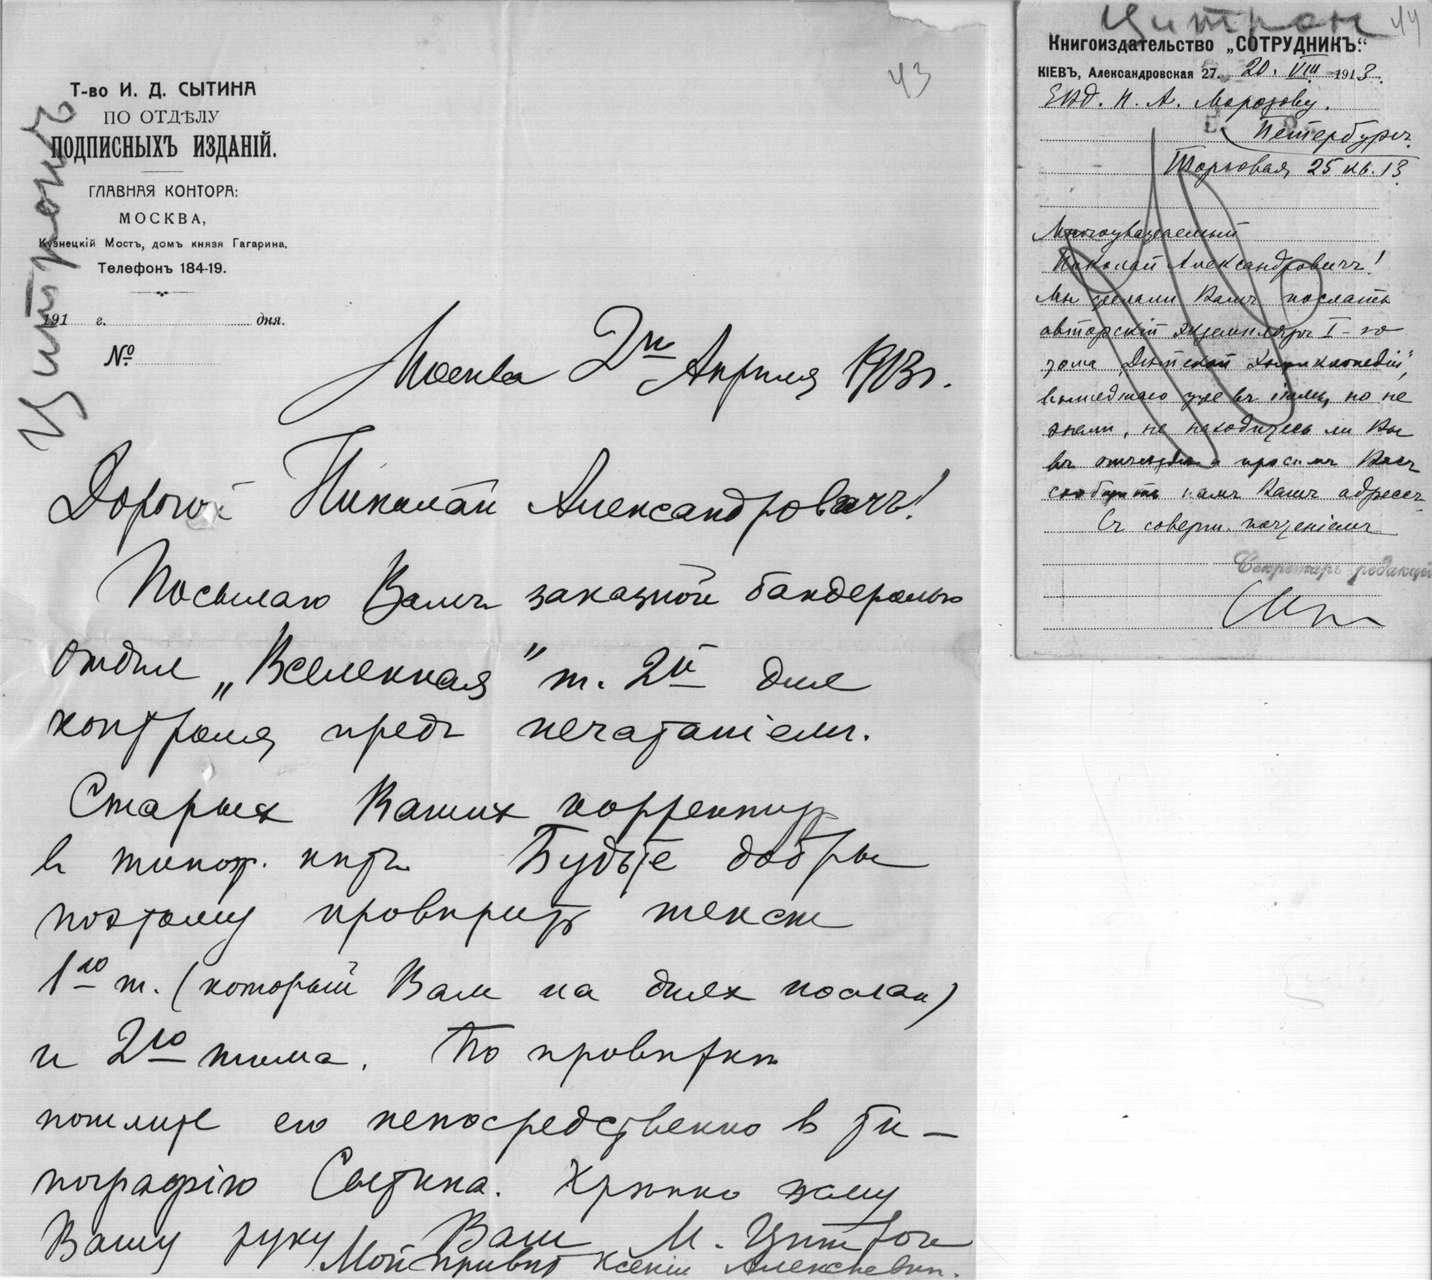 43
Цитронъ
Т-во И. Д. СЫТИНА
ПО ОТДѢЛУ
ПОДПИСНЫХЪ ИЗДАНІЙ.
ГЛАВНАЯ КОНТОРА:
МОСКВА,
Кузнецкій Мостъ, домъ князя Гагарина.
Телефонъ 184-19.
191 г. дня.
№
Москва 2го Апрѣля 1913 г.
Дорогой Николай Александровичъ!
Посылаю Вамъ заказной бандеролью
отдѣл „Вселенная" т. 2й для
контроля предъ печатаніемъ.
Старых Ваших корректур
в типогр. нѣтъ. Будьте добры
поэтому провѣрить текст
1го т. (который Вам на днях послан)
и 2го тома. По провѣркѣ
пошлите его непосредственно в ти-
пографію Сытина. Крѣпко жму
Вашу руку Ваш М. Цитрон
Мой привѣт Ксеніи Алексѣевнѣ.
Цитрон 44
Книгоиздательство „СОТРУДНИКЪ".
КІЕВЪ, Александровская 27. 20. VIII 1913.
ЕВд. Н. А. Морозову.
Петербургъ.
Торговая 25 кв. 13
Многоуважаемый
Николай Александровичъ!
Мы желали Вамъ послать
авторскій экземпляръ I-го
тома „Дѣтской Энциклопедіи",
вышедшаго уже въ но не
знали, не находитесь ли Вы
въ и просимъ Васъ
сообщить намъ Вашъ адресъ.
Съ соверш. почтеніемъ
Секретарь редакціи